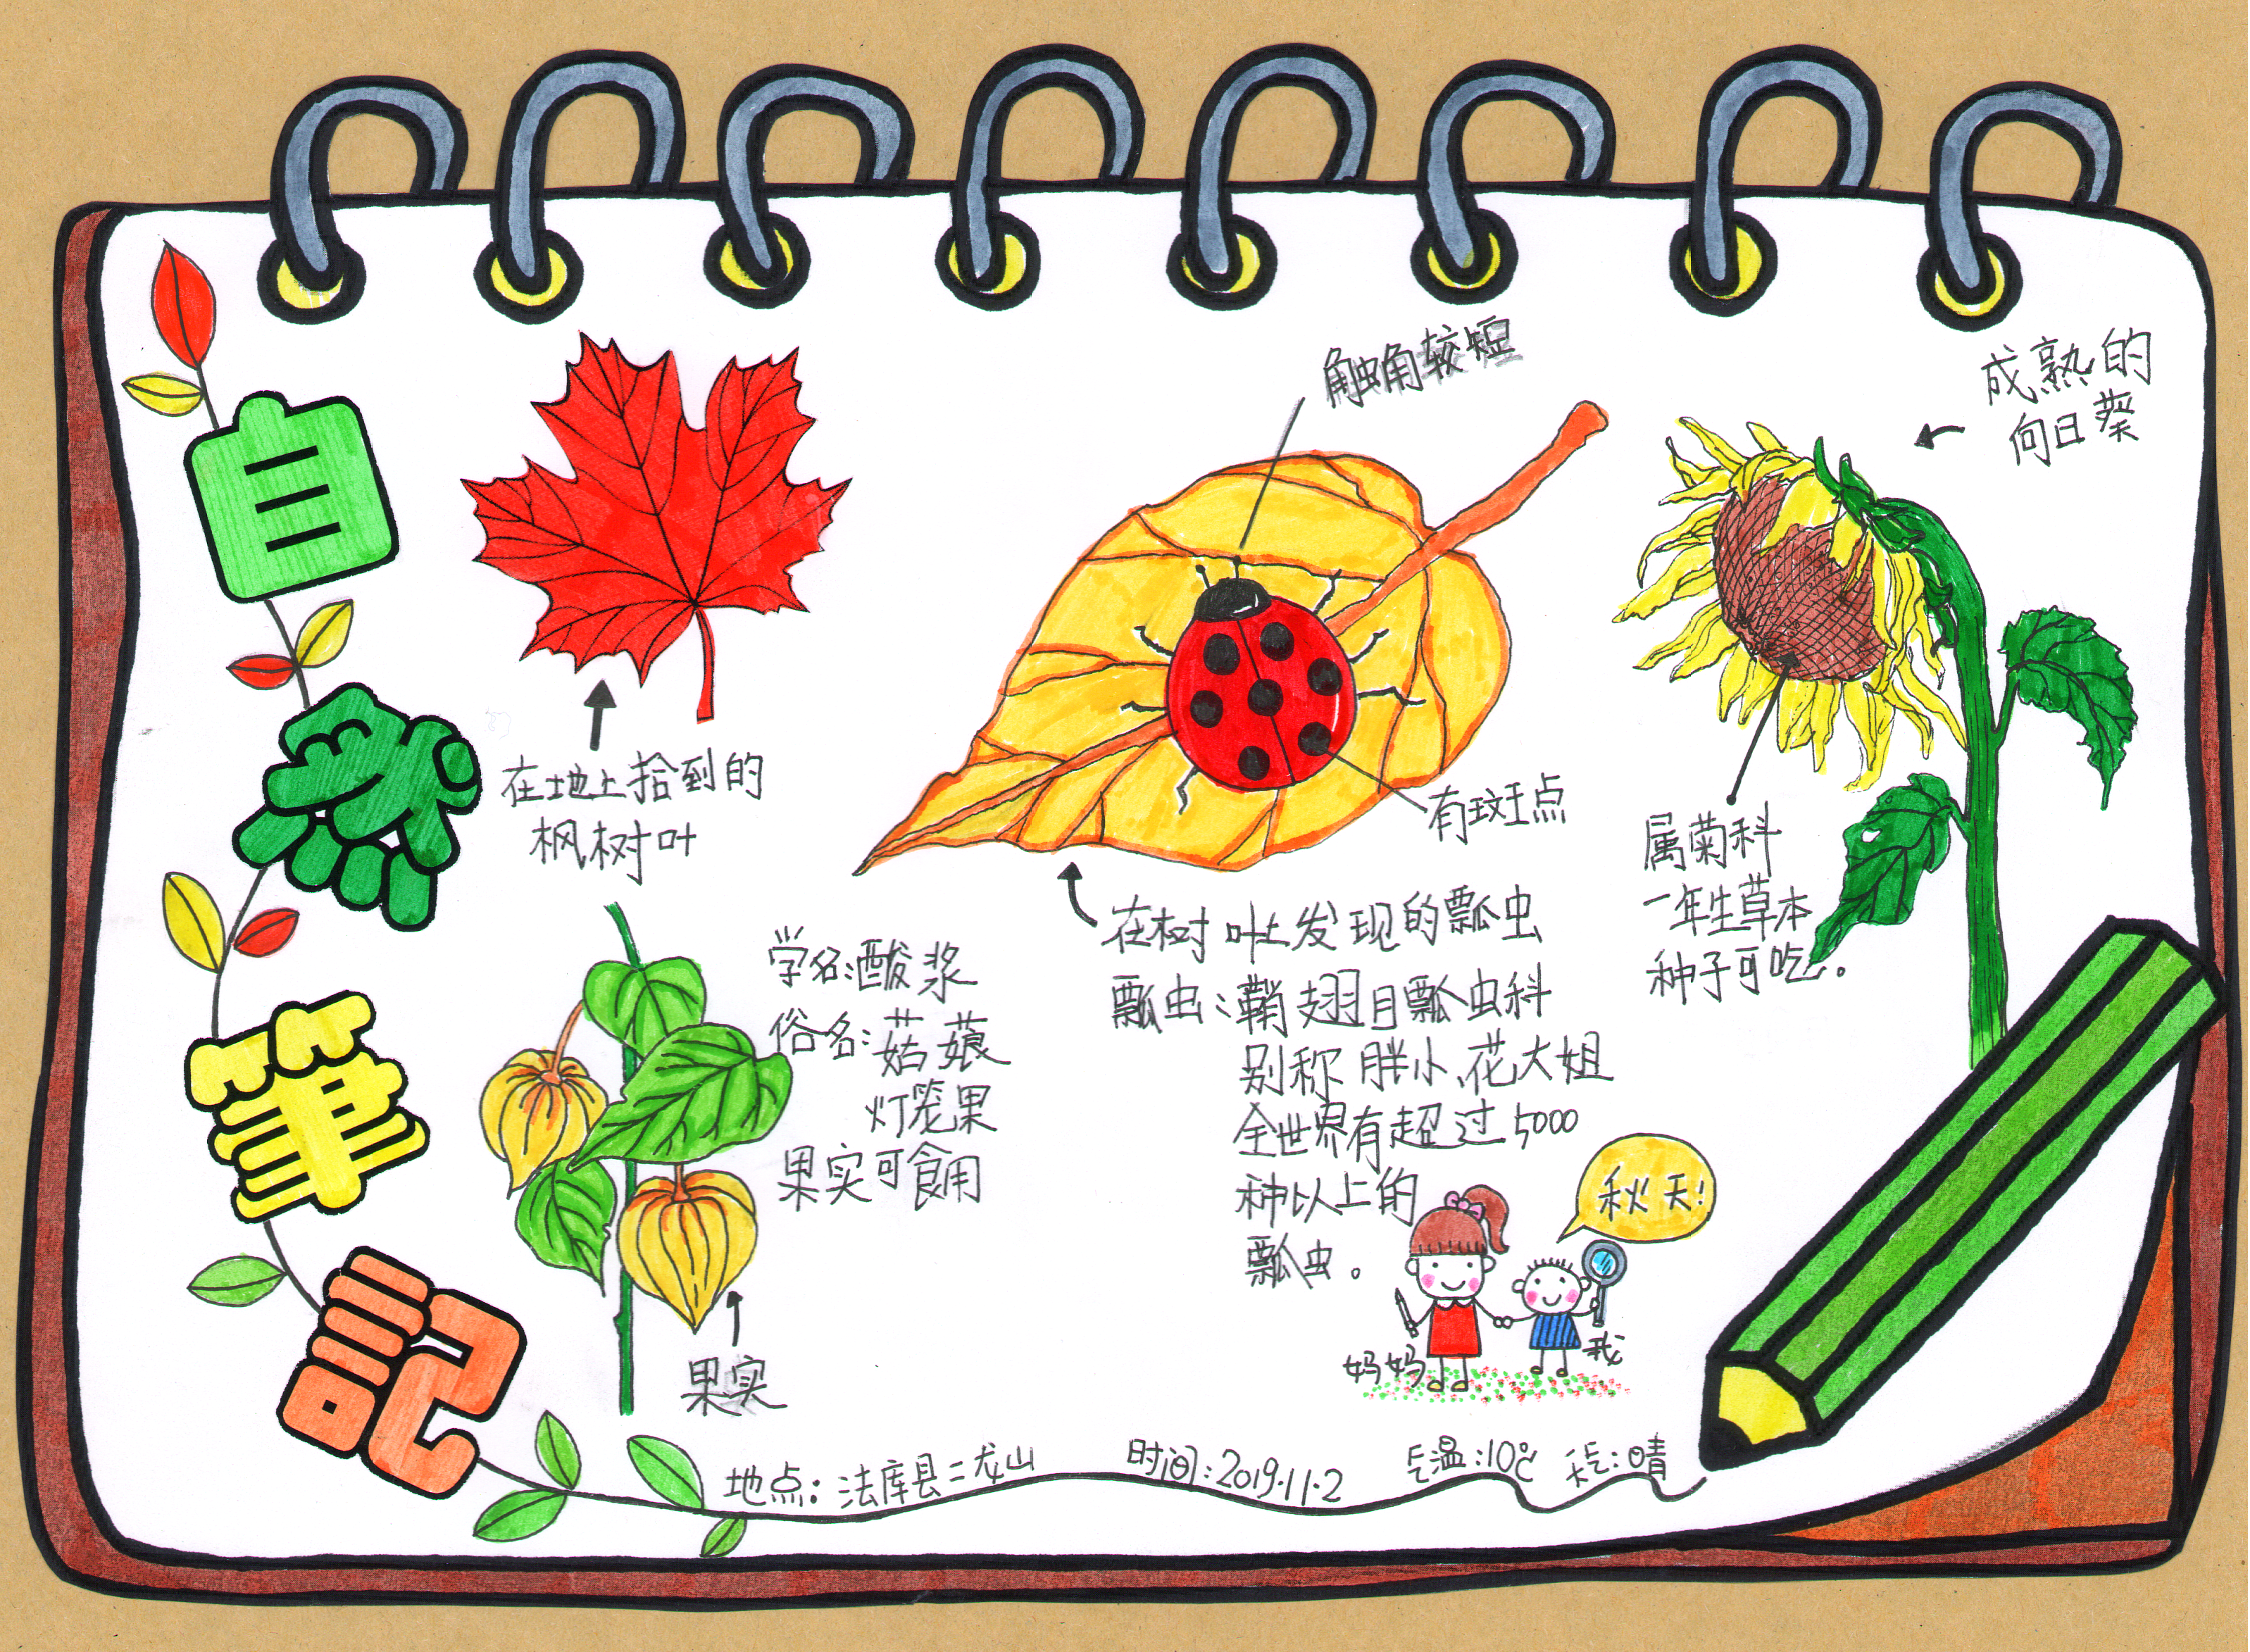 自然筆記
在地上拾到的
枫树叶
学名:酸浆
俗名:菇娘
灯笼果
果实可食用
果实
触角较短
有斑点
在树叶上发现的瓢虫
瓢虫:鞘翅目瓢虫科
别称 胖小、花大姐
全世界有超过5000
种以上的
瓢虫。
成熟的
向日葵
属菊科
一年生草本
种子可吃。
秋天!
妈妈
我
地点:法库县二龙山
时间:2019.11.2
气温:10℃
天气:晴